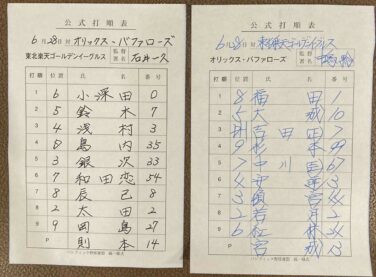 公式打順表
6月28日 対 オリックス・バファローズ
東北楽天ゴールデンイーグルス 監督署名 石井一久
打順 位置 氏名 番号
1 6 小深田 0
2 5 鈴木 7
3 4 浅村 3
4 島内 35
5 3 銀次 33
6 7 和田恋 54
7 8 辰己 8
8 2 太田 2
9 9 岡島 27
P 則本 14
パシフィック野球連盟 統一様式
公式打順表
6月28日 対 東北楽天ゴールデンイーグルス
オリックス・バファローズ 監督署名
打順 位置 氏名 番号
1 8 福田 1
2 5 大城 10
3 吉田 7
4 9 杉本 99
5 7 中川 67
6 4 安達 3
7 3 頓宮 44
8 2 若月 2
9 6 紅林 24
P 宮城 13
パシフィック野球連盟 統一様式